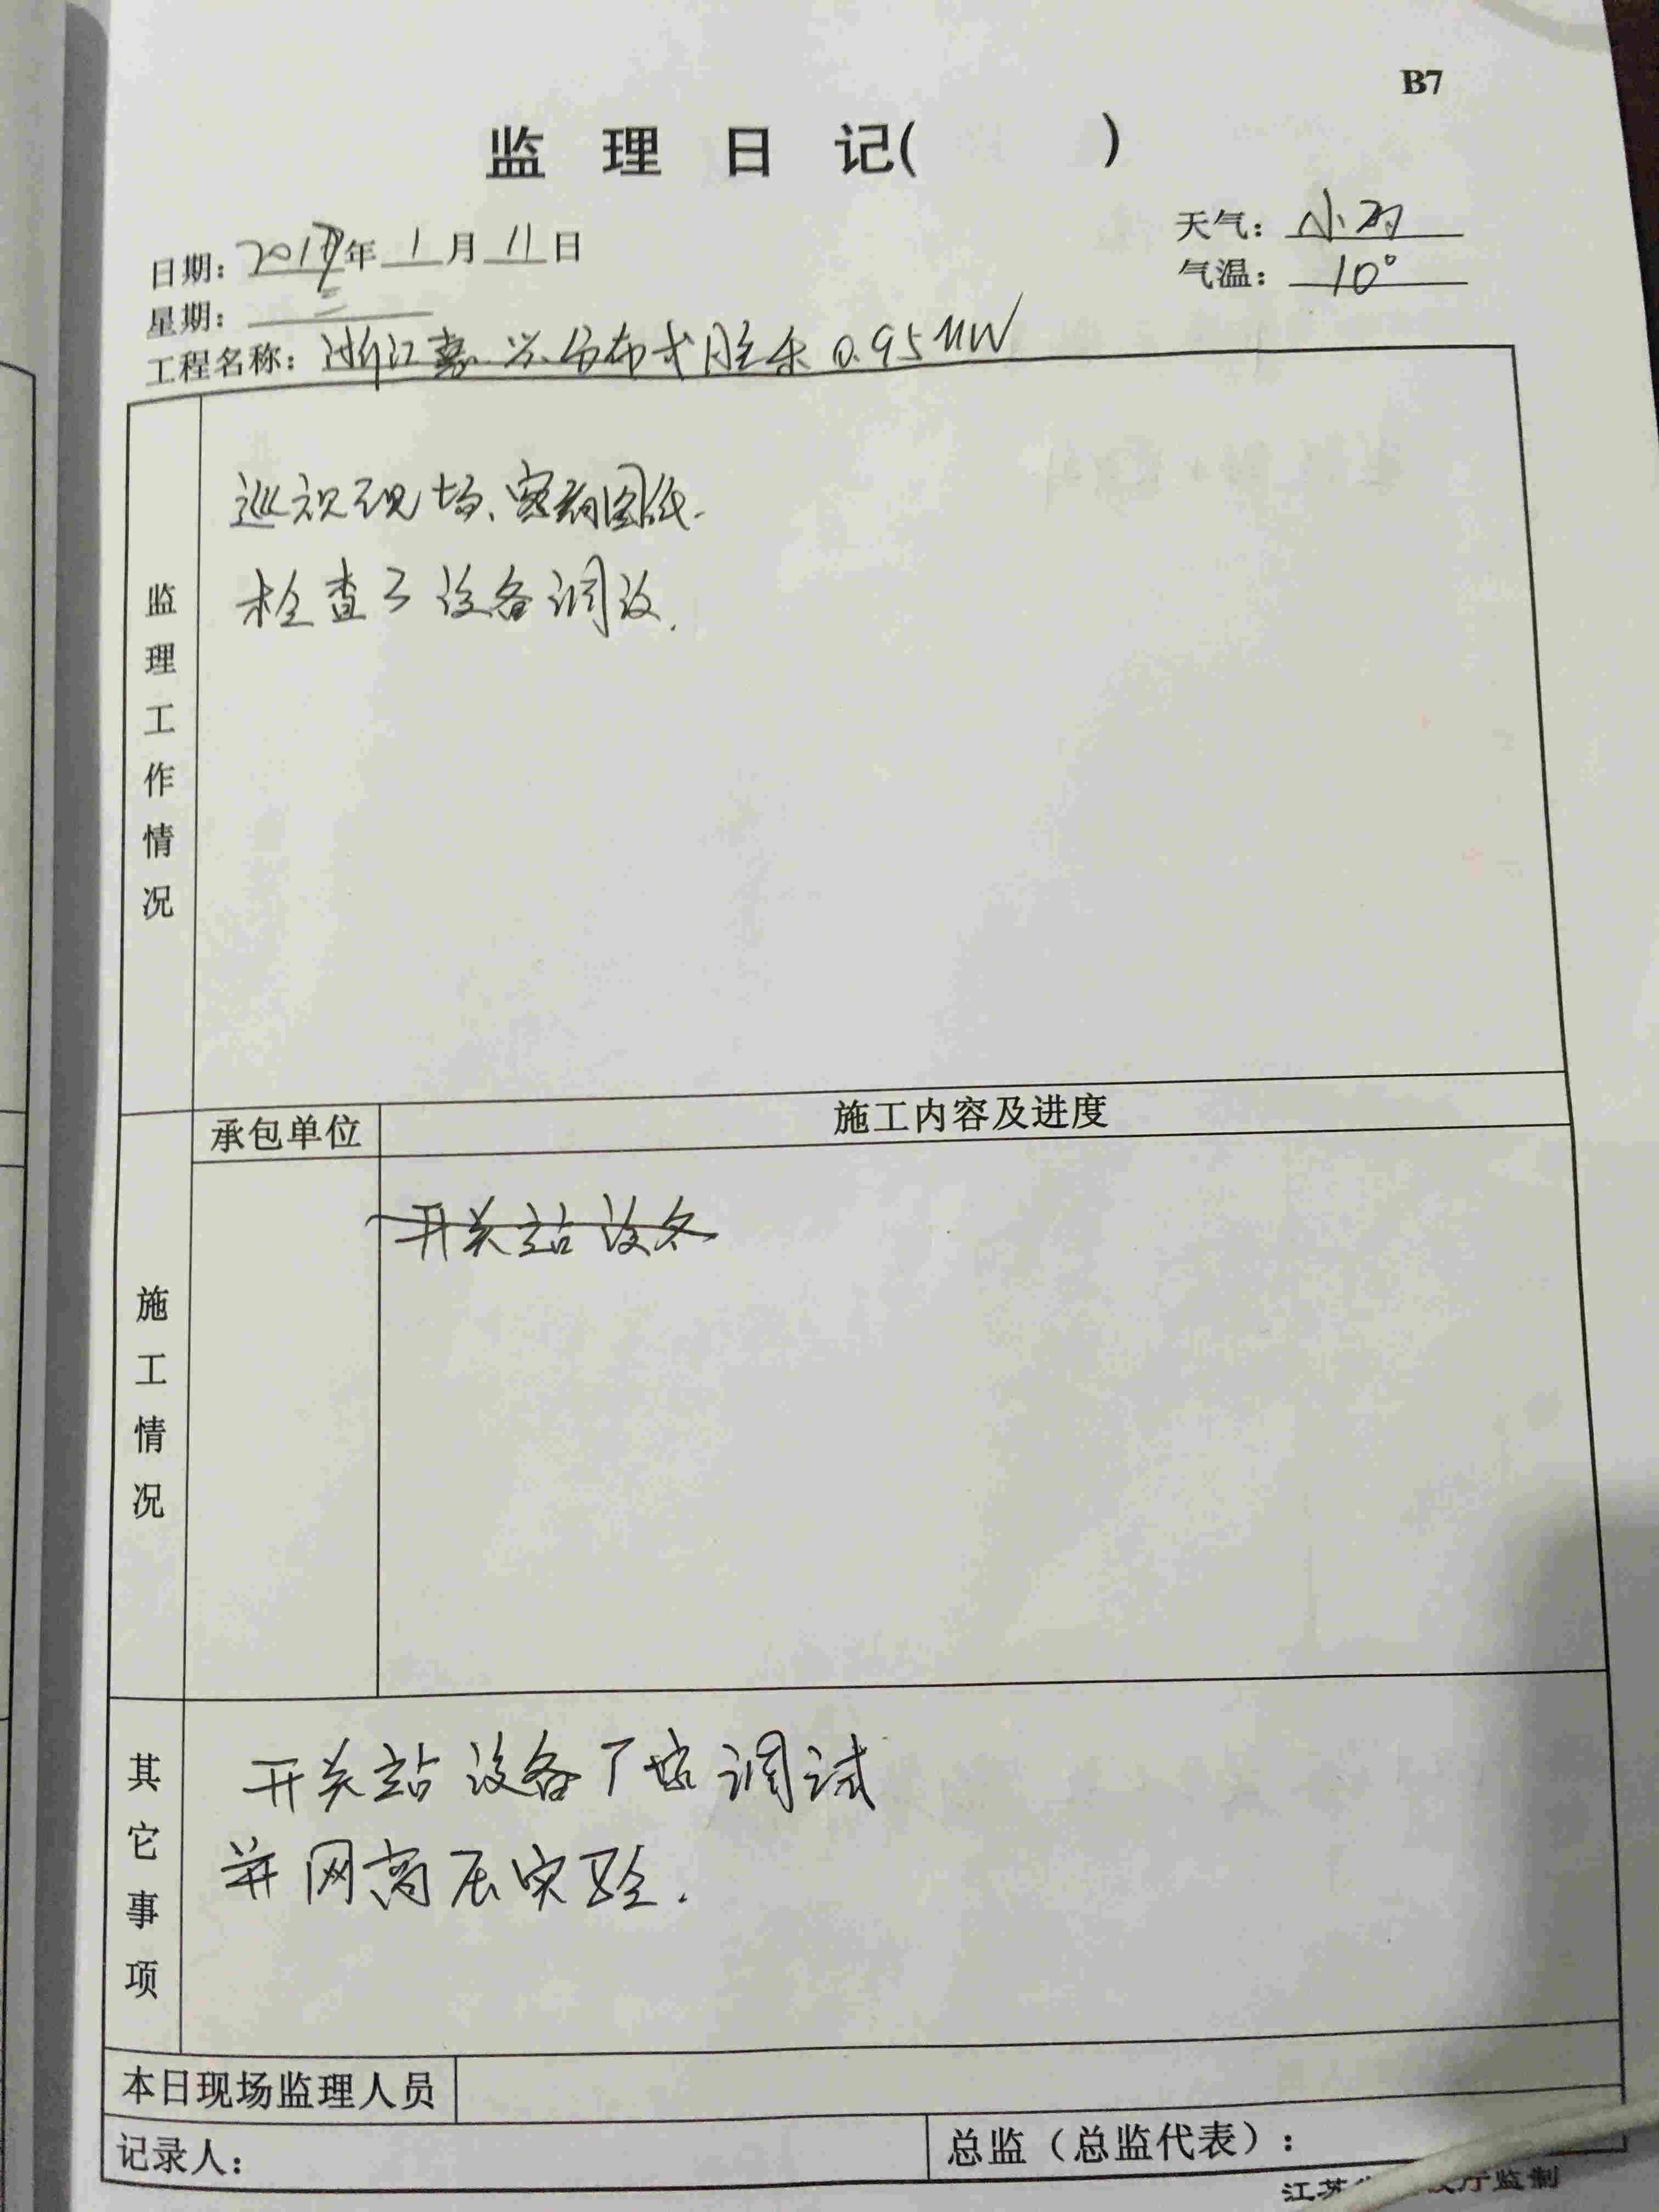 B7
监理日记( )
日期: 2017年1月11日
天气: 小雨
星期: 三
气温: 10°
工程名称: 浙江嘉兴分布式胜乐0.95MW
监理工作情况
巡视现场、审阅图纸.
检查了设备调设.
承包单位
施工内容及进度
施工情况
开关站设备
其它事项
开关站设备厂家调试
并网高压实验.
本日现场监理人员
记录人:
总监（总监代表）:
厅监制